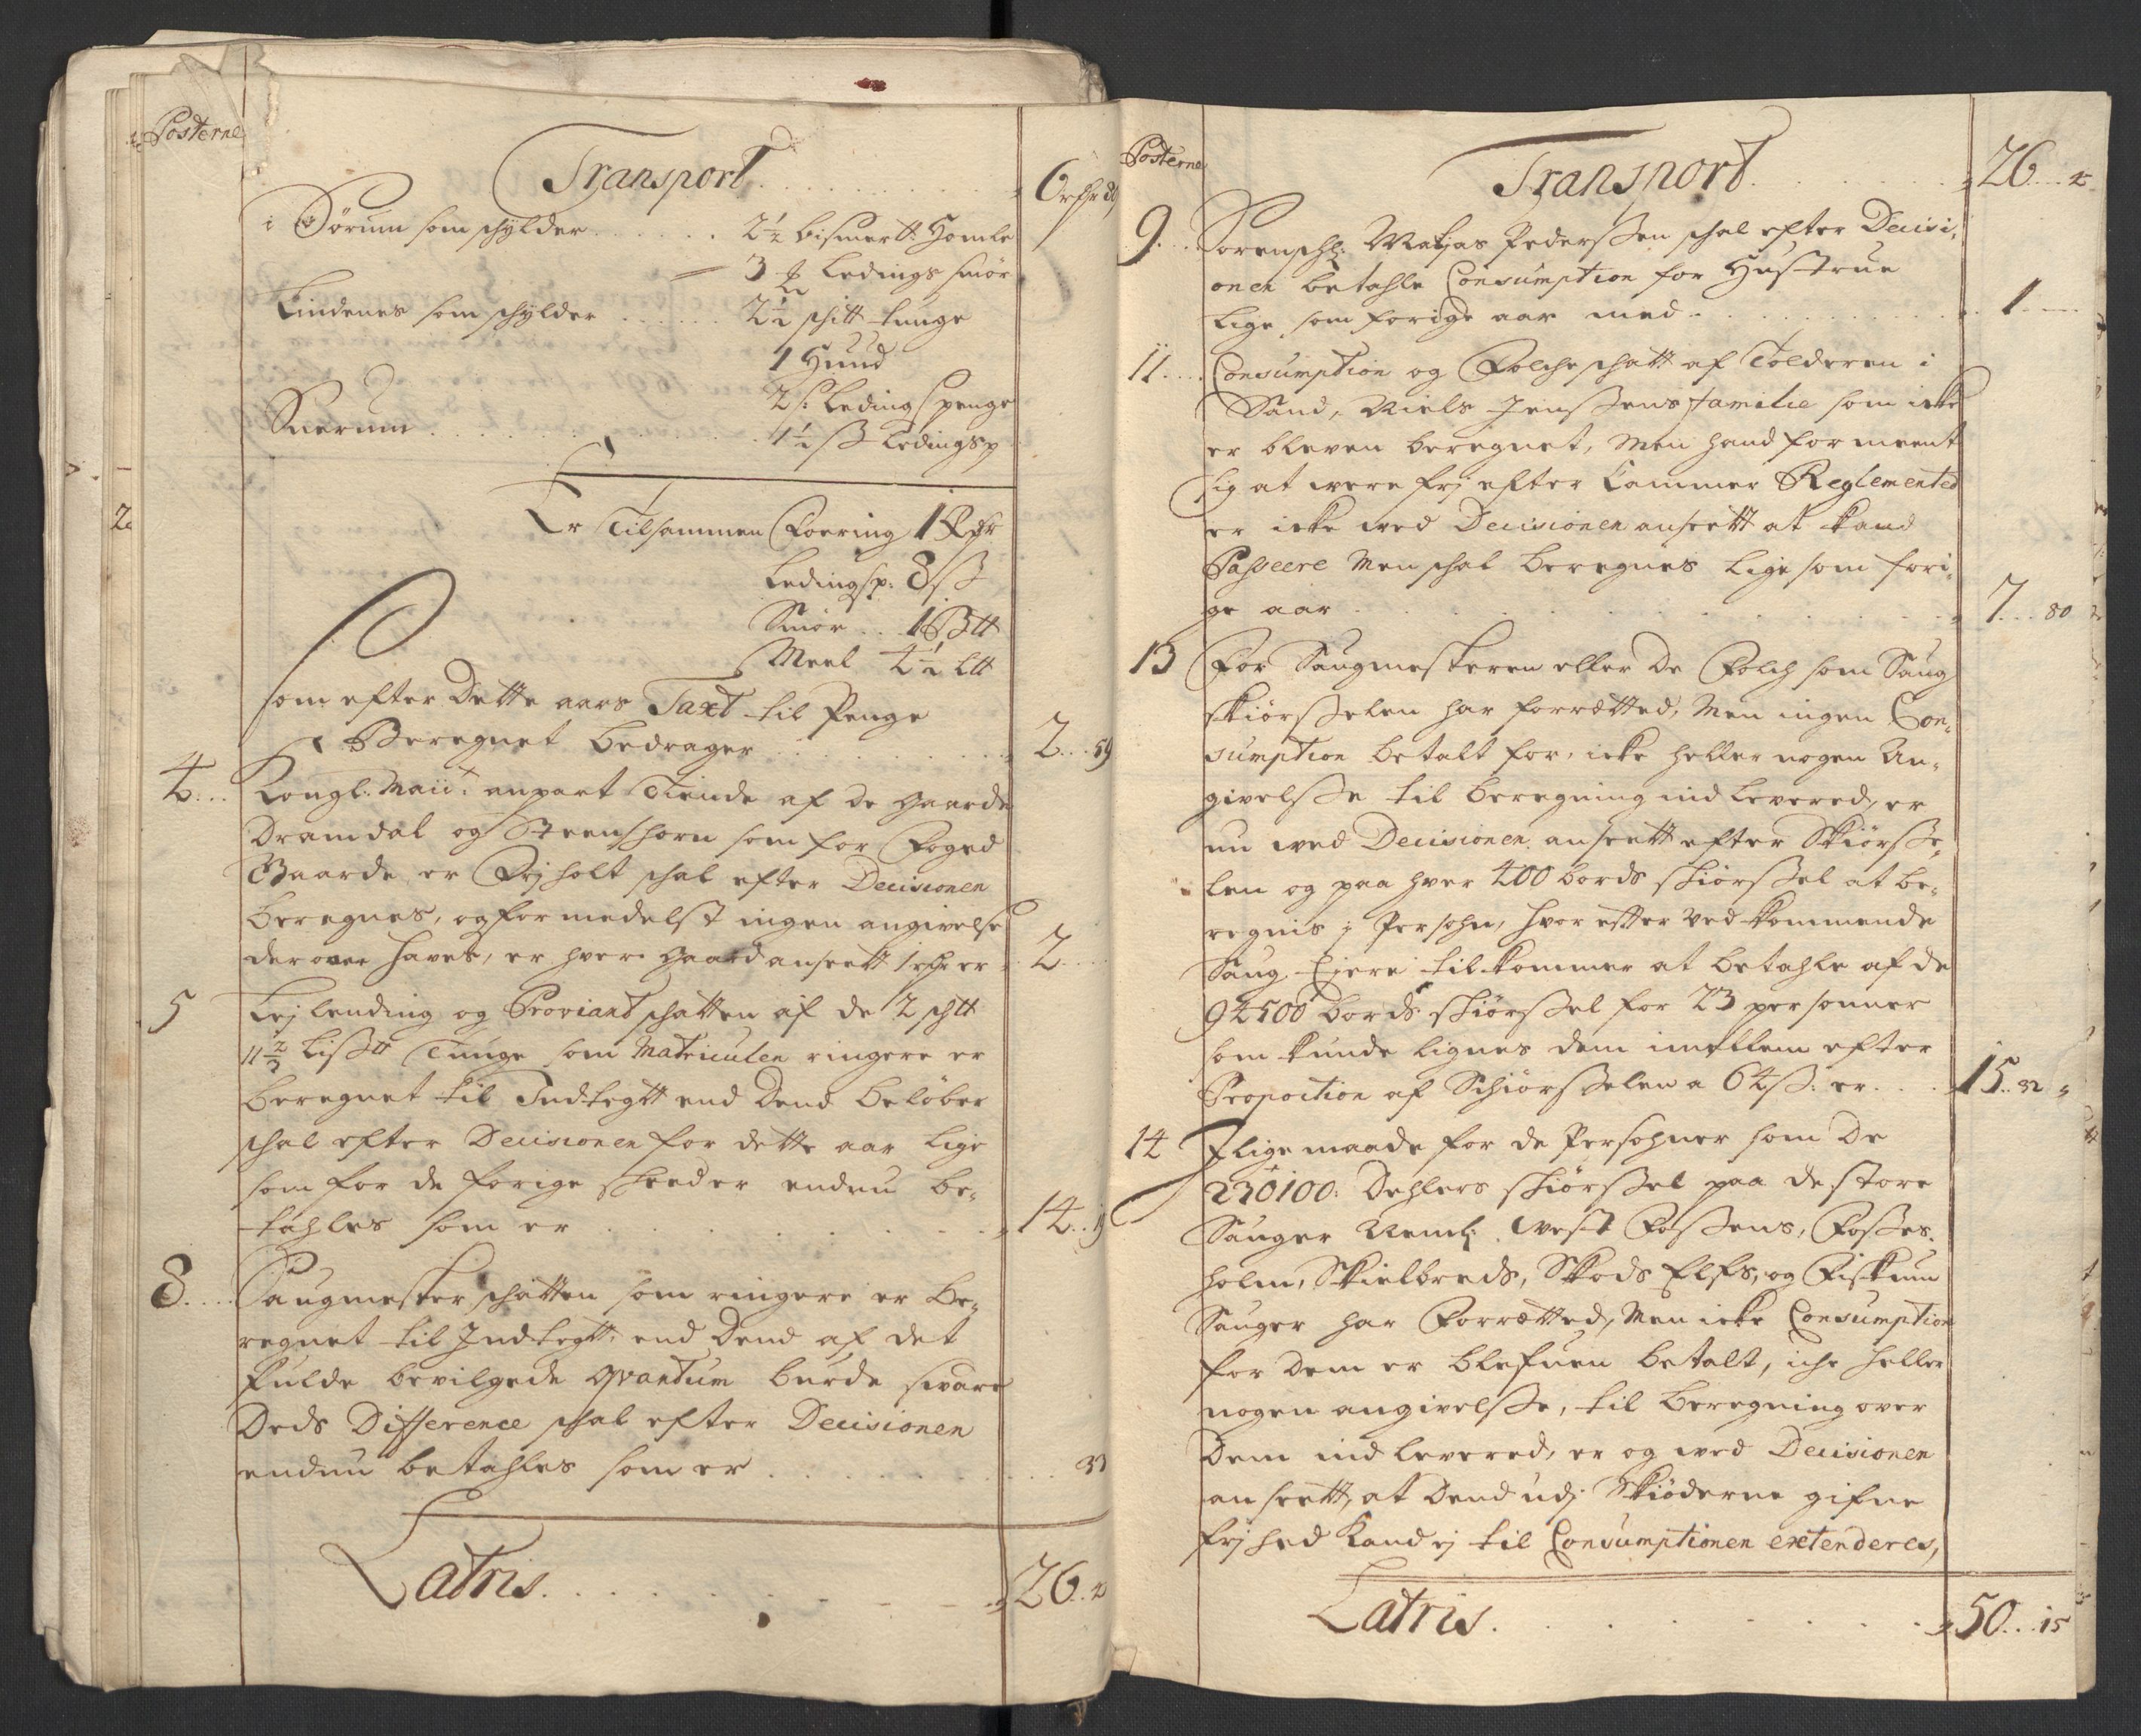 Posterne
Transport . . . . . . . 6
i Sørum som schylder . . . . . . 2½ bismertt: Homle
3 Ledings smør
Lindenes som schylder . . . . . . 2½ schitt tunge
1 Huud
2 s: Leding Spenge
Snerum . . . . . . . 4½ ß Ledingsp
Er Tilsammen Foering 1
Ledingsp: 8 ß
Smør . . 1
Meel 4½ Ltt
som efter Dette aars Taxt til Penge
Beregnet bedrager . . . . . . 2 . . 59
4 . . . Kongl: Maii: anpart Tiende af de gaarde
Dramdal og Steenshorn som for Foged
Gaarde er Frj holt schal efter Decisionen
beregnes, og formedelst ingen angivelse
der over haves, er hver gaard ansett 1 er . . 2 . . .
5 Lejlending og Proviant schatten af de 2 schtt
11⅔ Lißtt Tunge som Matriculen ringere er
beregnet til Indtegtt end Dend beløber
schal efter Decisionen for dette aar Lige
som for de forige steeder endnu be-
tahles som er . . . . . . . 14 . . 19
8 . . . Saugmester schatten som ringere er be-
regnet til Indtegtt, end Dend af det
fulde bevilgede qvantum burde svare
Deds Difference schal efter Decisionen
endnu betahles som er . . . . . . . 33
Latris . . . . . . . 26 . . 4
Posterne
Transport . . . . . . . 26 . . . 4
9 . . . Sorenschr: Matjas Pederßen schal efter Decisi-
onen betahle Consumption for Hustrue
Lige som forige aar med . . . . . . . 1 . . .
11 . . . Consumption og Folche schatt af Tolderen i
Sand, Niels Jenßens familie som icke
er bleven beregnet, Men hand formeent
sig at were frj efter Cammer Reglemented
er icke wed Decisionen anseett at kand
Passeere Men schal beregnes Lige som fori-
ge aar . . . . . . . 7 . . . 80
13 For Saugmesteren eller de Folch som Saug
skiørßelen har forrætted, Men ingen Con-
sumption betalt for, icke heller nogen An-
givelße til beregning indlevered, er
nu wed Decisionen anseett efter Skiørße-
len og paa hver 400 bords skiørßel at be-
regnis j Persohn, hvor efter ved kommende
Saug Ejere tilkommer at betahle af de
94500 bords skiørßel for 23 personner
som kunde lignes dem imellem efter
Proportion af Schiørßelen a 64 ß: er . . . . 15 . . 32
14 J lige maade for de Persohner som de
230100: Dehlers skiørßel paa de store
Sauger Neml: west Foßens, Foßes-
holm, Skielbreds, Skods Elfs, og Fiskum
Sauger har Forrætted, Men icke Consumption
for Dem er blefuen betalt, iche heller
nogen angivelße, til beregning over
Dem indlevered, er og wed Decisionen
anseett, at Dend udj Skiøderne gifne
frj hed kand ej til Consumptionen extenderes,
Latris . . . . . . . 50 . . . 15